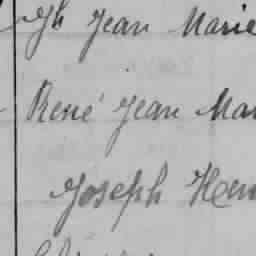 Jh Jean Marie
René Jean Mar
Joseph Hen